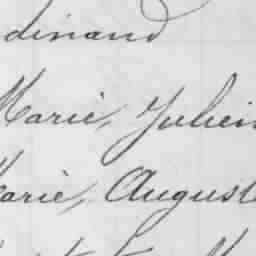 dinand
Marie, Julien
Marie, August